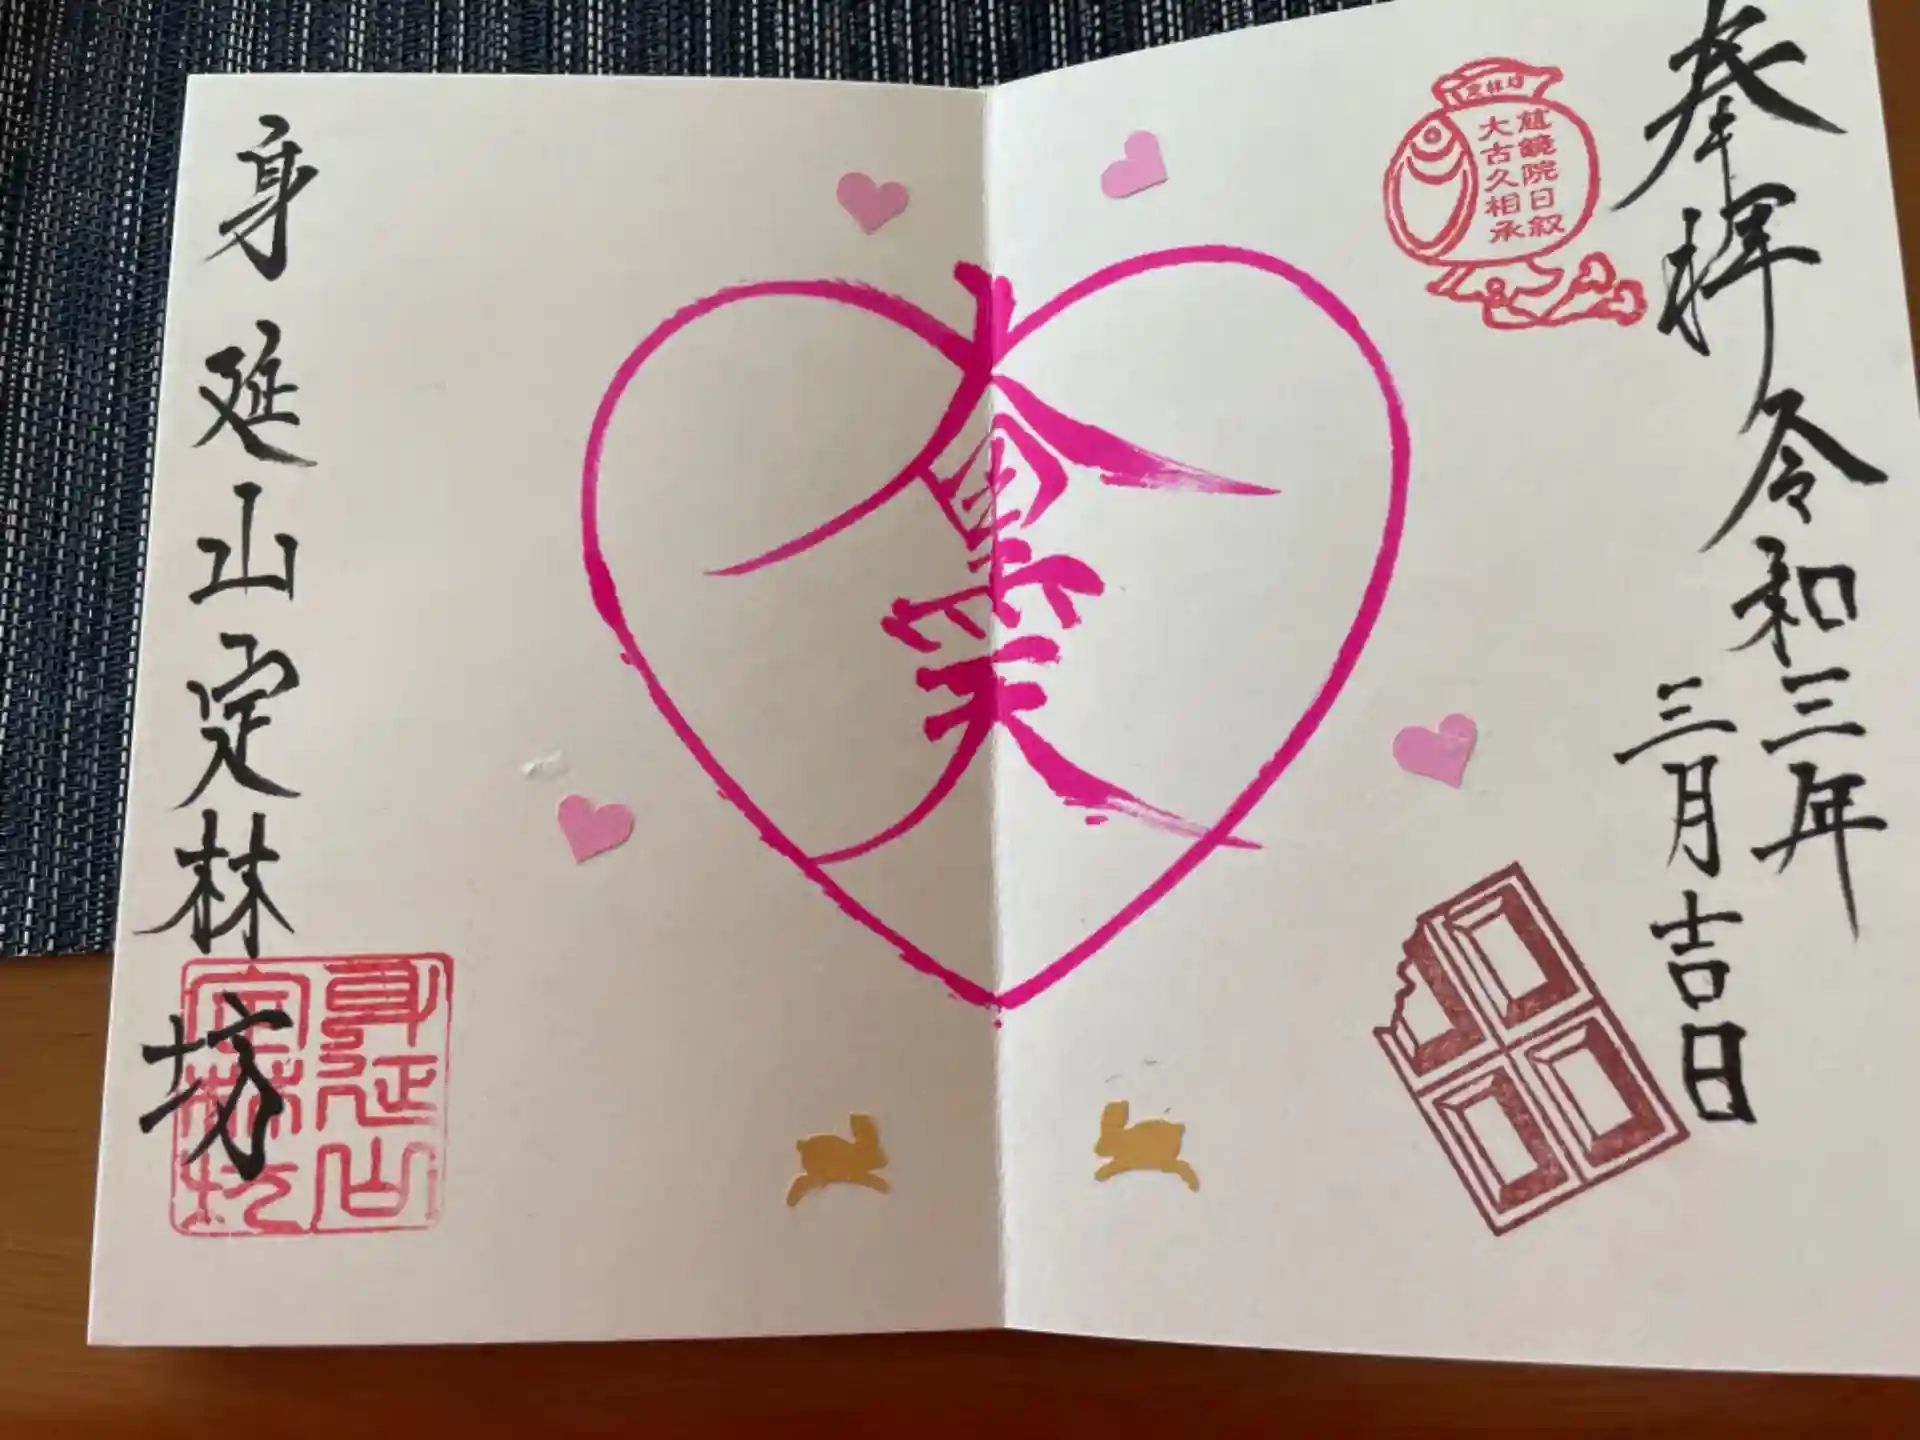 奉拝
令和三年
三月吉日
慈鏡院日叙
大古久相承
大黒天
身延山定林坊
身延山
定林坊